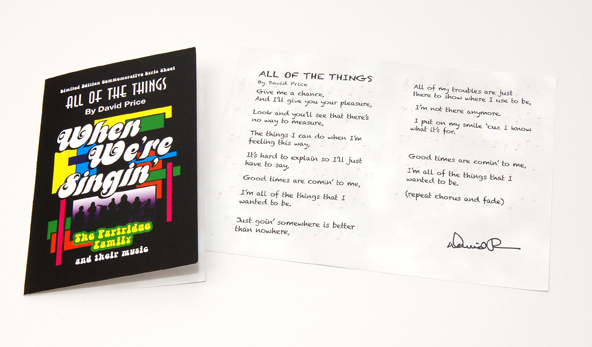 Limited Edition Commemorative Lyric Sheet
ALL OF THE THINGS
By David Price
When
We're
Singin'
The Partridge
Family
and their music
ALL OF THE THINGS
By David Price
Give me a chance,
And I'll give you your pleasure,
Look and you'll see that there's
no way to measure,
The things I can do when I'm
feeling this way,
It's hard to explain so I'll just
have to say,
Good times are comin' to me,
I'm all of the things that I
wanted to be.
Just goin' somewhere is better
than nowhere,
All of my troubles are just
there to show where I use to be,
I'm not there anymore.
I put on my smile 'cuz I know
what it's for.
Good times are comin' to me,
I'm all of the things that I
wanted to be.
(repeat chorus and fade)